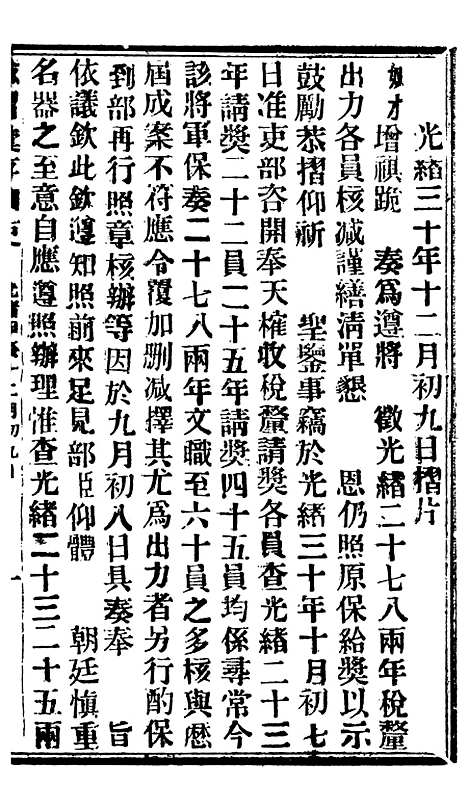 光緒三十年十二月初九日摺片
奴才增祺跪　奏爲遵將　徵光緒二十七八兩年稅釐
出力各員核減謹繕清單懇　恩仍照原保給獎以示
鼓勵恭摺仰祈　聖鑒事竊於光緒三十年十月初七
日准吏部咨開奉天權收稅釐請獎各員查光緒二十三
年請獎二十二員二十五年請獎四十五員均係尋常今
該將軍保奏二十七八兩年文職至六十員之多核與歷
屆成案不符應令覆加刪減擇其尤爲出力者另行酌保
到部再行照章核辦等因於九月初八日具奏奉　旨
依議欽此欽遵知照前來足見部臣仰體　朝廷慎重
名器之至意自應遵照辦理惟查光緒二十三二十五兩